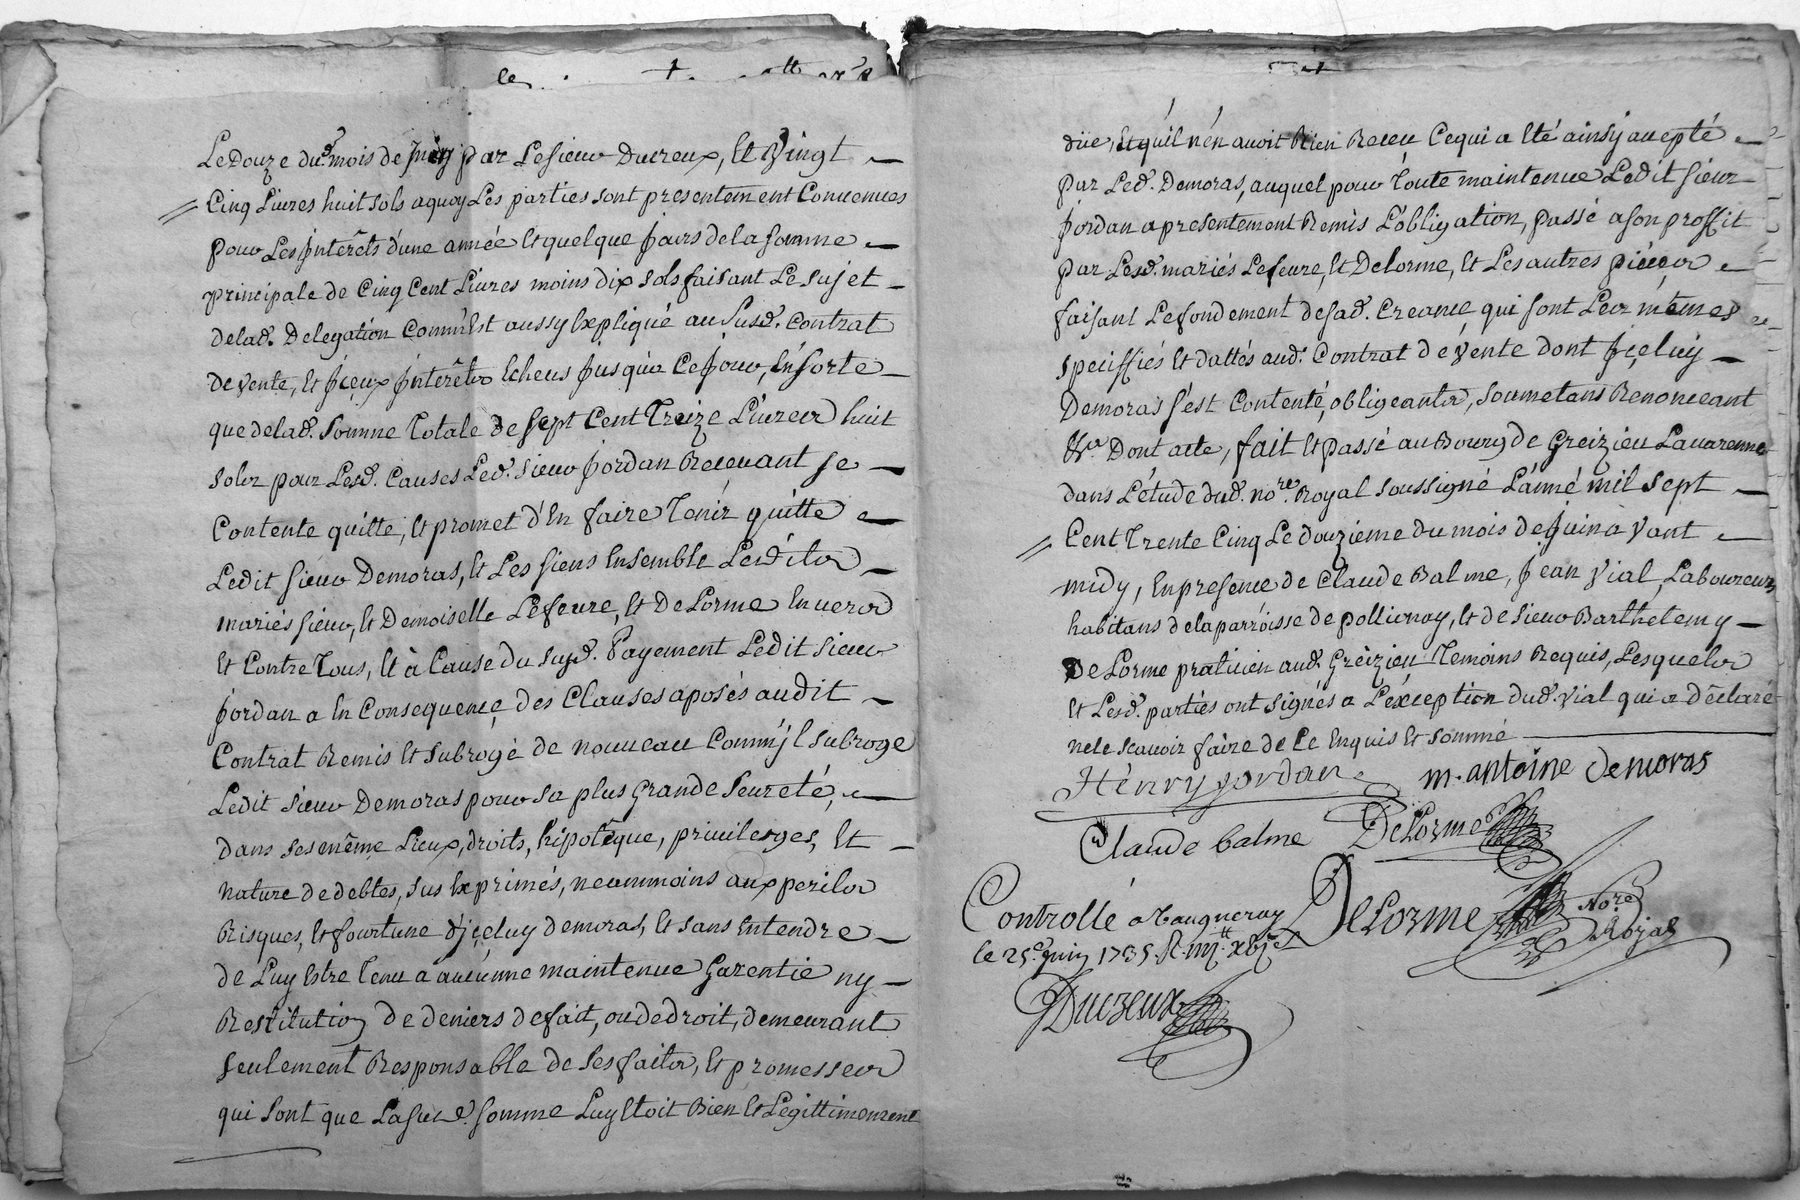 Le Douze du.^d mois de Juin par Le sieur Ducreux, Et Vingt
Cinq Livres huit sols a quoy Les parties sont presentement Convenues
pour Les Jnterêts d'une année Et quelque Jours de la somme
principale de Cinq Cent Livres moins dix sols faisant Le sujet
de lad. Delegation Comm'Est aussy Expliqué au susd. Contrat
de vente, Et Jçeux Jnterêts Echeus Jusqu'a Ce Jour, En sorte
que de lad. somme Totale de sept Cent Treize Livres huit
sols pour Lesd. Causes Led. sieur Jordan Recevant se
Contente quitte, Et promet d'En faire Tenir quitte
Ledit sieur Demoras, Et Les siens Ensemble Lesdits
mariés sieur, Et Demoiselle Lefevre, Et DeLorme Envers
Et Contre Tous, Et à Cause du susd. Payement Ledit sieur
Jordan a En Consequençe des Clauses aposés audit
Contrat Remis Et subrogé de nouveau Comm'jl subroge
Ledit sieur Demoras pour sa plus Grande seureté,
dans ses même Lieux, droits, hipotêque, privileges, Et
nature de debtes, sus Exprimés, neammoins aux perils
Risques, Et fourtune d'jçeluy demoras, Et sans Entendre
de Luy Estre Tenu a aucunne maintenue Garentie ny
Restitution de deniers de fait, ou de droit, demeurant
seulement Responsable de ses faits, Et promesses
qui sont que La susd. somme Luy Etoit Bien Et Legittimement
düe, Et qu'il n'en avoit Rien Receu Ce qui a Eté ainsy accepté
par Led. Demoras, auquel pour Toute maintenue Ledit sieur
Jordan a presentement Remis L'obligation, passé a son proffit
par Lesd. mariés Lefevre, Et Delorme, Et Les autres pièces
faisant Le fondement de sad. Creance, qui sont Les mêmes
speciffiés Et dattés aud. Contrat de vente dont Jçeluy
Demoras s'est Contenté, obligeants, soumetans Renonceant
&a. Dont acte, fait Et passé au Bourg de Greizieu Lavarenne
dans L'étude dud. no.re Royal soussigné L'anné mil sept
Cent Trente Cinq Le douzieme du mois de Juin avant
midy, En presence de Claude Balme, Jean Vial, Laboureurs
habitans de la parroisse de pollionay, Et de sieur Barthelemy
DeLorme praticien aud. Greizieu Temoins Requis, Lesquels
Et Lesd. parties ont signés a L'éxception dud. Vial qui a déclaré
ne le scavoir faire de Ce Enquis Et sommé
Hénry jordan m. antoine demoras
Claude balme DeLorme
Controllé a Vaugneray DeLorme No.re Royal
le 25.e juin 1735.
Ducreux